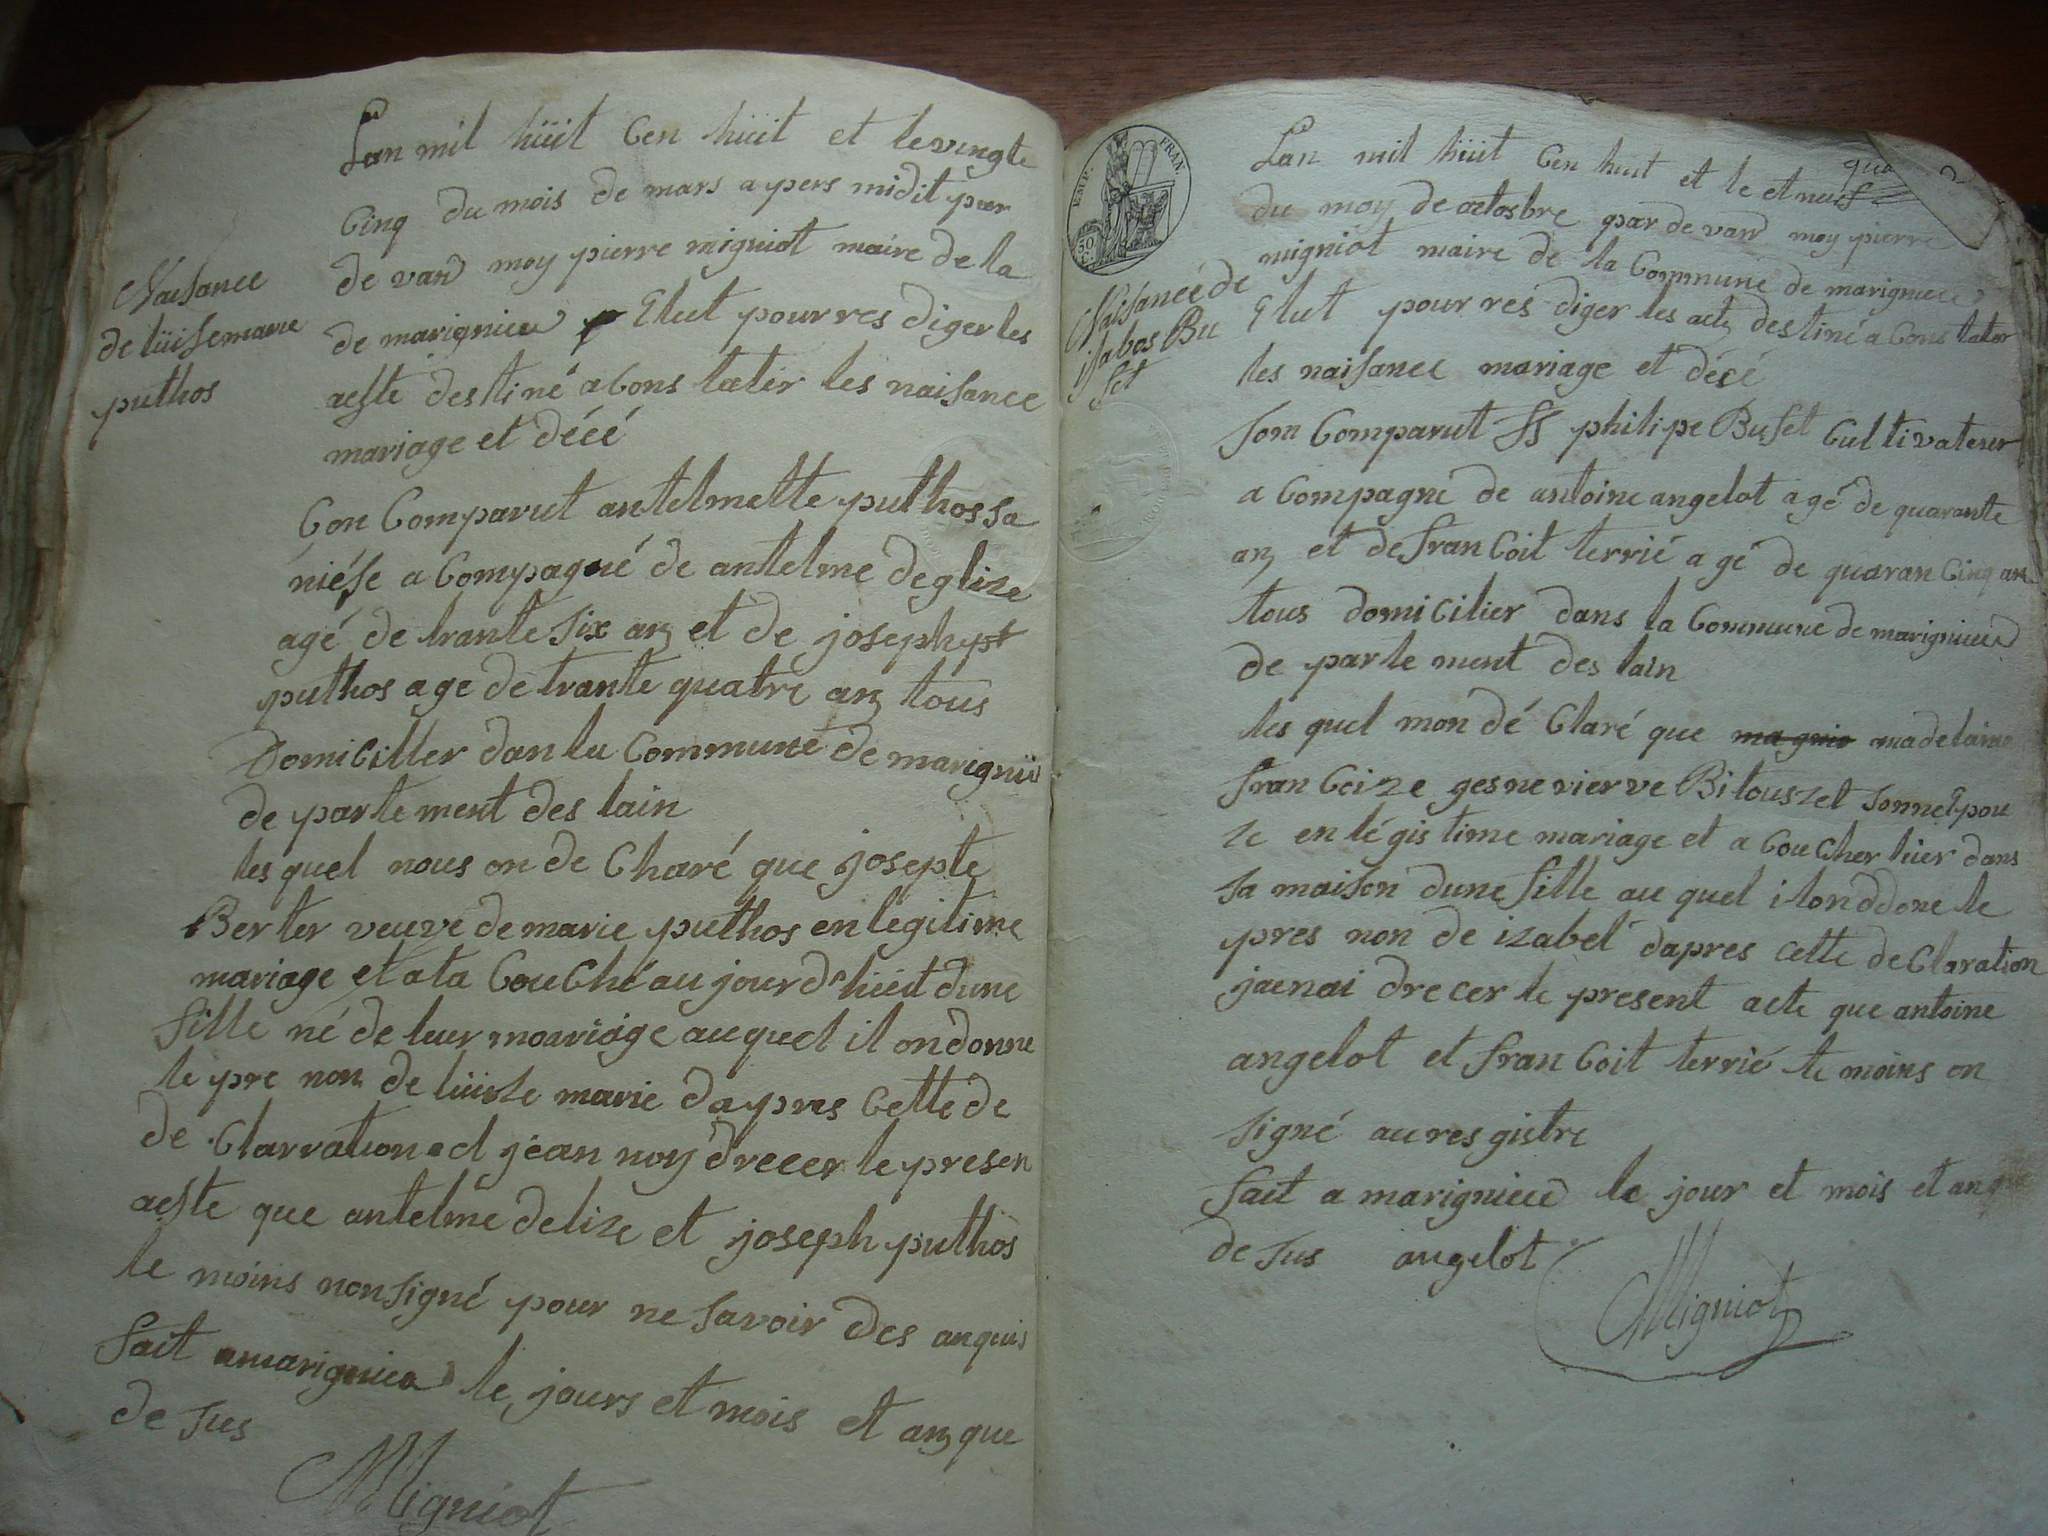 Naisance
de lüisemarie
puthos
Lan mil hüit Cen hüit et le vingte
Cinq du mois de mars a pers midit par
de van moy pierre migniot maire de la
de marignieu Elut pour res diger les
acste destiné a Cons tater les naisance
mariage et décé
Con Comparut antelmette puthos sa
niése a Compagné de antelme deglize
agé de trante six an et de joseph
puthos age de trante quatre an tous
Domiciller dan la Commune de marignii
de parte ment des lain
les quel nous on de Charé que josepte
Berter veuve de marie puthos en legitime
mariage et ata Couché au jourd'hüit dune
fille né de leur mariage auquel il on donne
le pre non de lüisse marie dapres Cette de
de Clarration el jean noy drecer le presen
acste que antelme delize et joseph puthos
te moins non signé pour ne savoir des anquis
fait a marignieu le jours et mois et an que
de sus
Migniot
EMP. FRAN.
50
C.
Naisanée de
isabos Bu
set
Lan mil hüit Cen huit et le et neuf
qua
du moy de octosbre par de van moy pierre
migniot maire de la Commune de marignieu
Elut pour res diger les act destiné a Cons tater
les naisance mariage et décé
som Comparut philipe Buset Cultivateur
a Compagné de antoine angelot agé de quarante
an et de fran Coit terrié agé de quaran Cinq an
tous domicilier dans la Commune de marignieu
de parte ment des lain
les quel mon dé Claré que madelaine
fran Coize gesne vier ve Bitouszet son nepou
ze en légis time mariage et a Coucher hier dans
sa maison dune fille au quel il on ddone le
pres non de izabel dapres cette de Claration
jaenai drecer le present acte que antoine
angelot et fran Coit terrié te moins on
signé au res gistre
fait a marignieu le jour et mois et an que
de sus angelot
Migniot